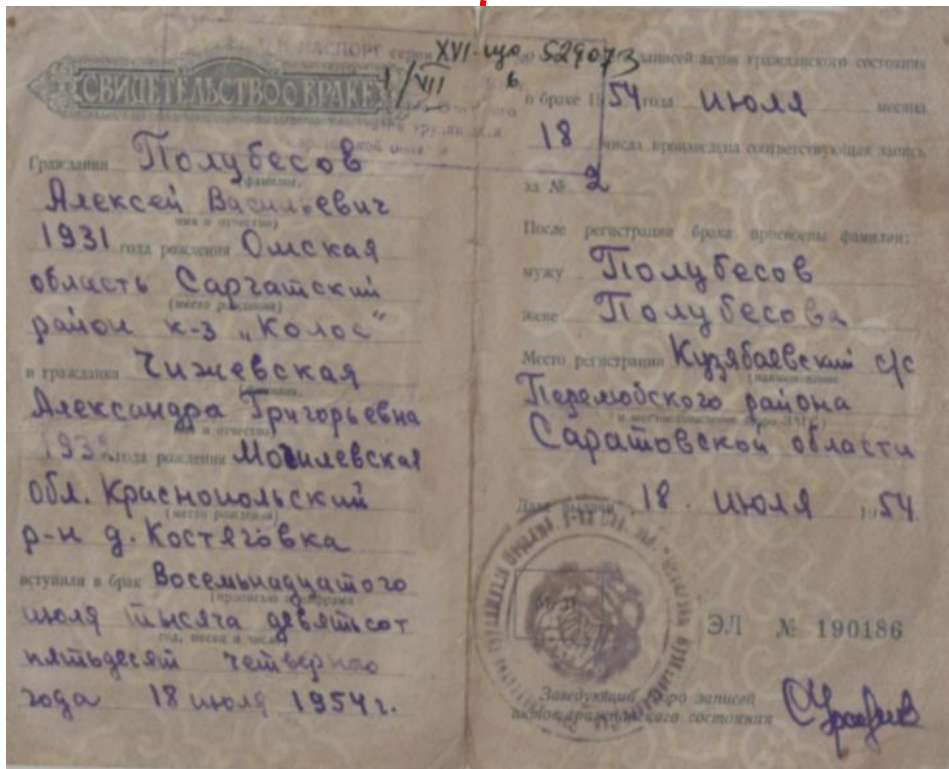 ПАСПОРТ серии XVI-що № 529073
СВИДЕТЕЛЬСТВО О БРАКЕ
1/VII
Гражданин Полубесов
(фамилия,
Алексей Васильевич
имя и отчество)
1931 года рождения Омская
область Саргатский
(место рождения)
район к-з „Колос“
и гражданка Чижевская
(фамилия,
Александра Григорьевна
имя и отчество)
года рождения Могилевская
обл. Краснопольский
(место рождения)
р-н д. Костяговка
вступили в брак Восемьнадцатого
(прописью и цифрами
июля тысяча девятьсот
год, месяц и число)
пятьдесят четверного
года 18 июля 1954 г.
записей актов гражданского состояния
о браке 1954 года июля месяца
18 числа произведена соответствующая запись
за № 2
После регистрации брака присвоены фамилии:
мужу Полубесов
жене Полубесова
Место регистрации Кузябаевский с/с
(наименование
Перелюбского района
и местонахождение бюро ЗАГС)
Саратовской области
Дата выдачи 18 июля 1954
ЭЛ № 190186
Заведующий бюро записей
актов гражданского состояния